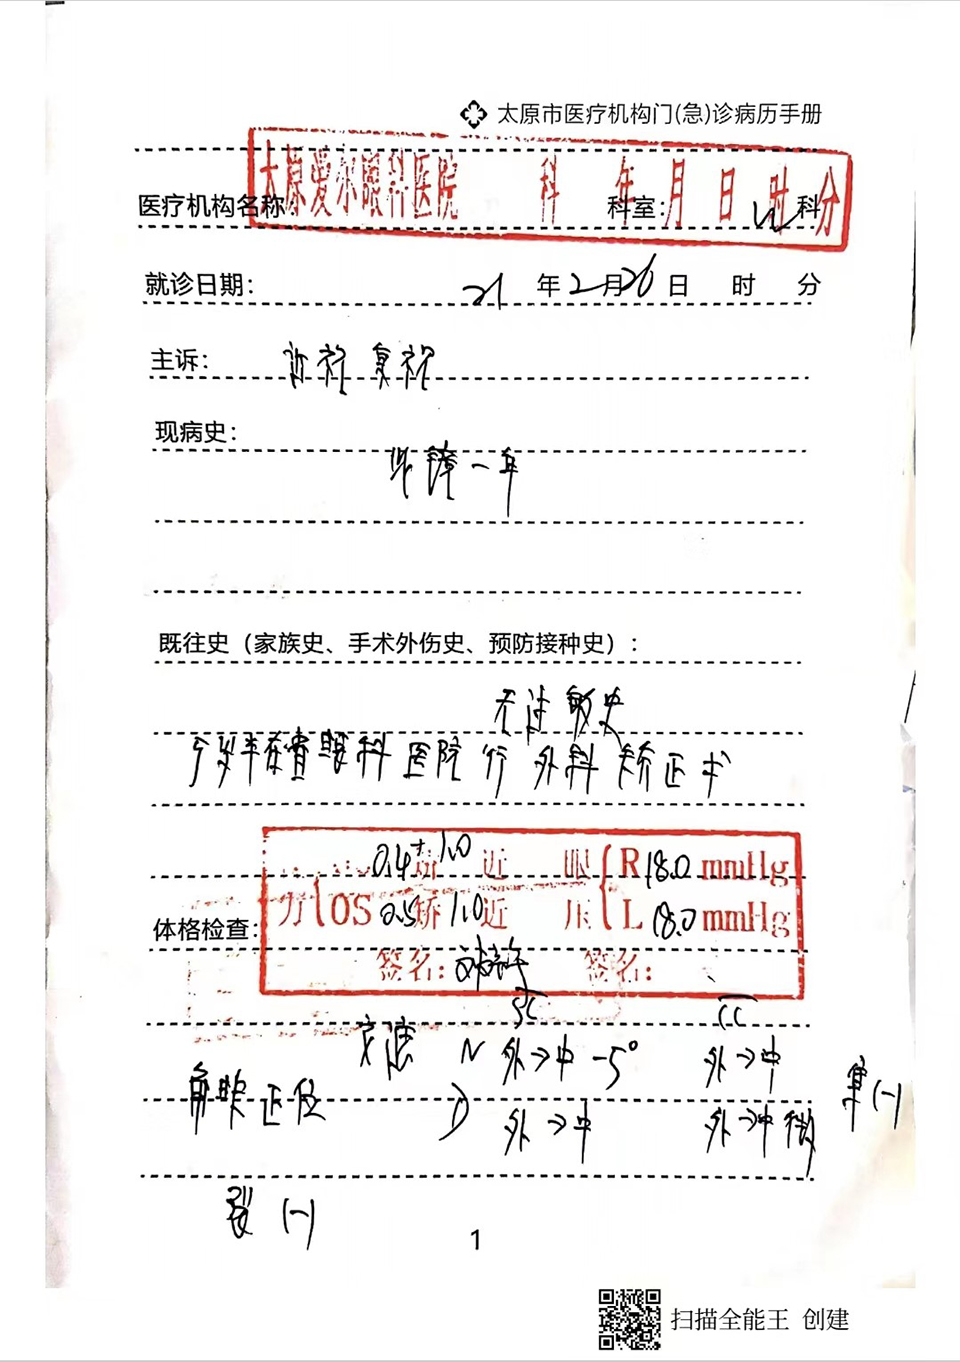 太原市医疗机构门(急)诊病历手册
太原爱尔眼科医院 科 年 月 日 时 分
医疗机构名称 科室: 科
就诊日期: 21 年 2 月 26 日 时 分
主诉: 近视复视
现病史:
戴镜一年
既往史（家族史、手术外伤史、预防接种史）:
无过敏史
5岁半在 眼科医院行外科矫正术
0.4⁺ 矫 1.0 近 眼 R 18.0 mmHg
体格检查: 力 OS 0.5 矫 1.0 近 压 L 18.0 mmHg
签名: 签名:
SC CC
交遮 N 外→中 -5° 外→中
角映正位 D 外→中 外→中微 (-)
裂 (-)
1
扫描全能王 创建